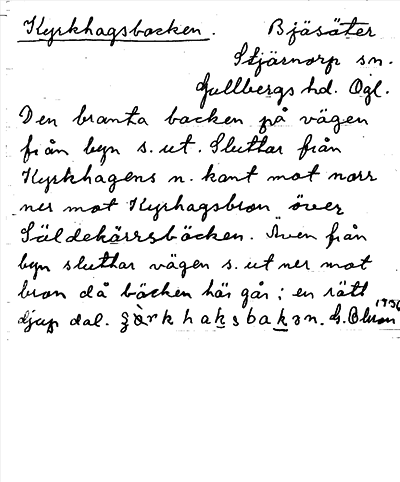 Kyrkhagsbacken. Bjäsäter
Stjärnorp sn.
Gullbergs hd. Ögl.
Den branta backen på vägen
från byn s. ut. Sluttar från
Kyrkhagens n. kant mot norr
ner mot Kyrhagsbron över
Säldekärrsbäcken. Även från
byn sluttar vägen s. ut ner mot
bron då bäcken här går i en rätt
djup dal. 1936